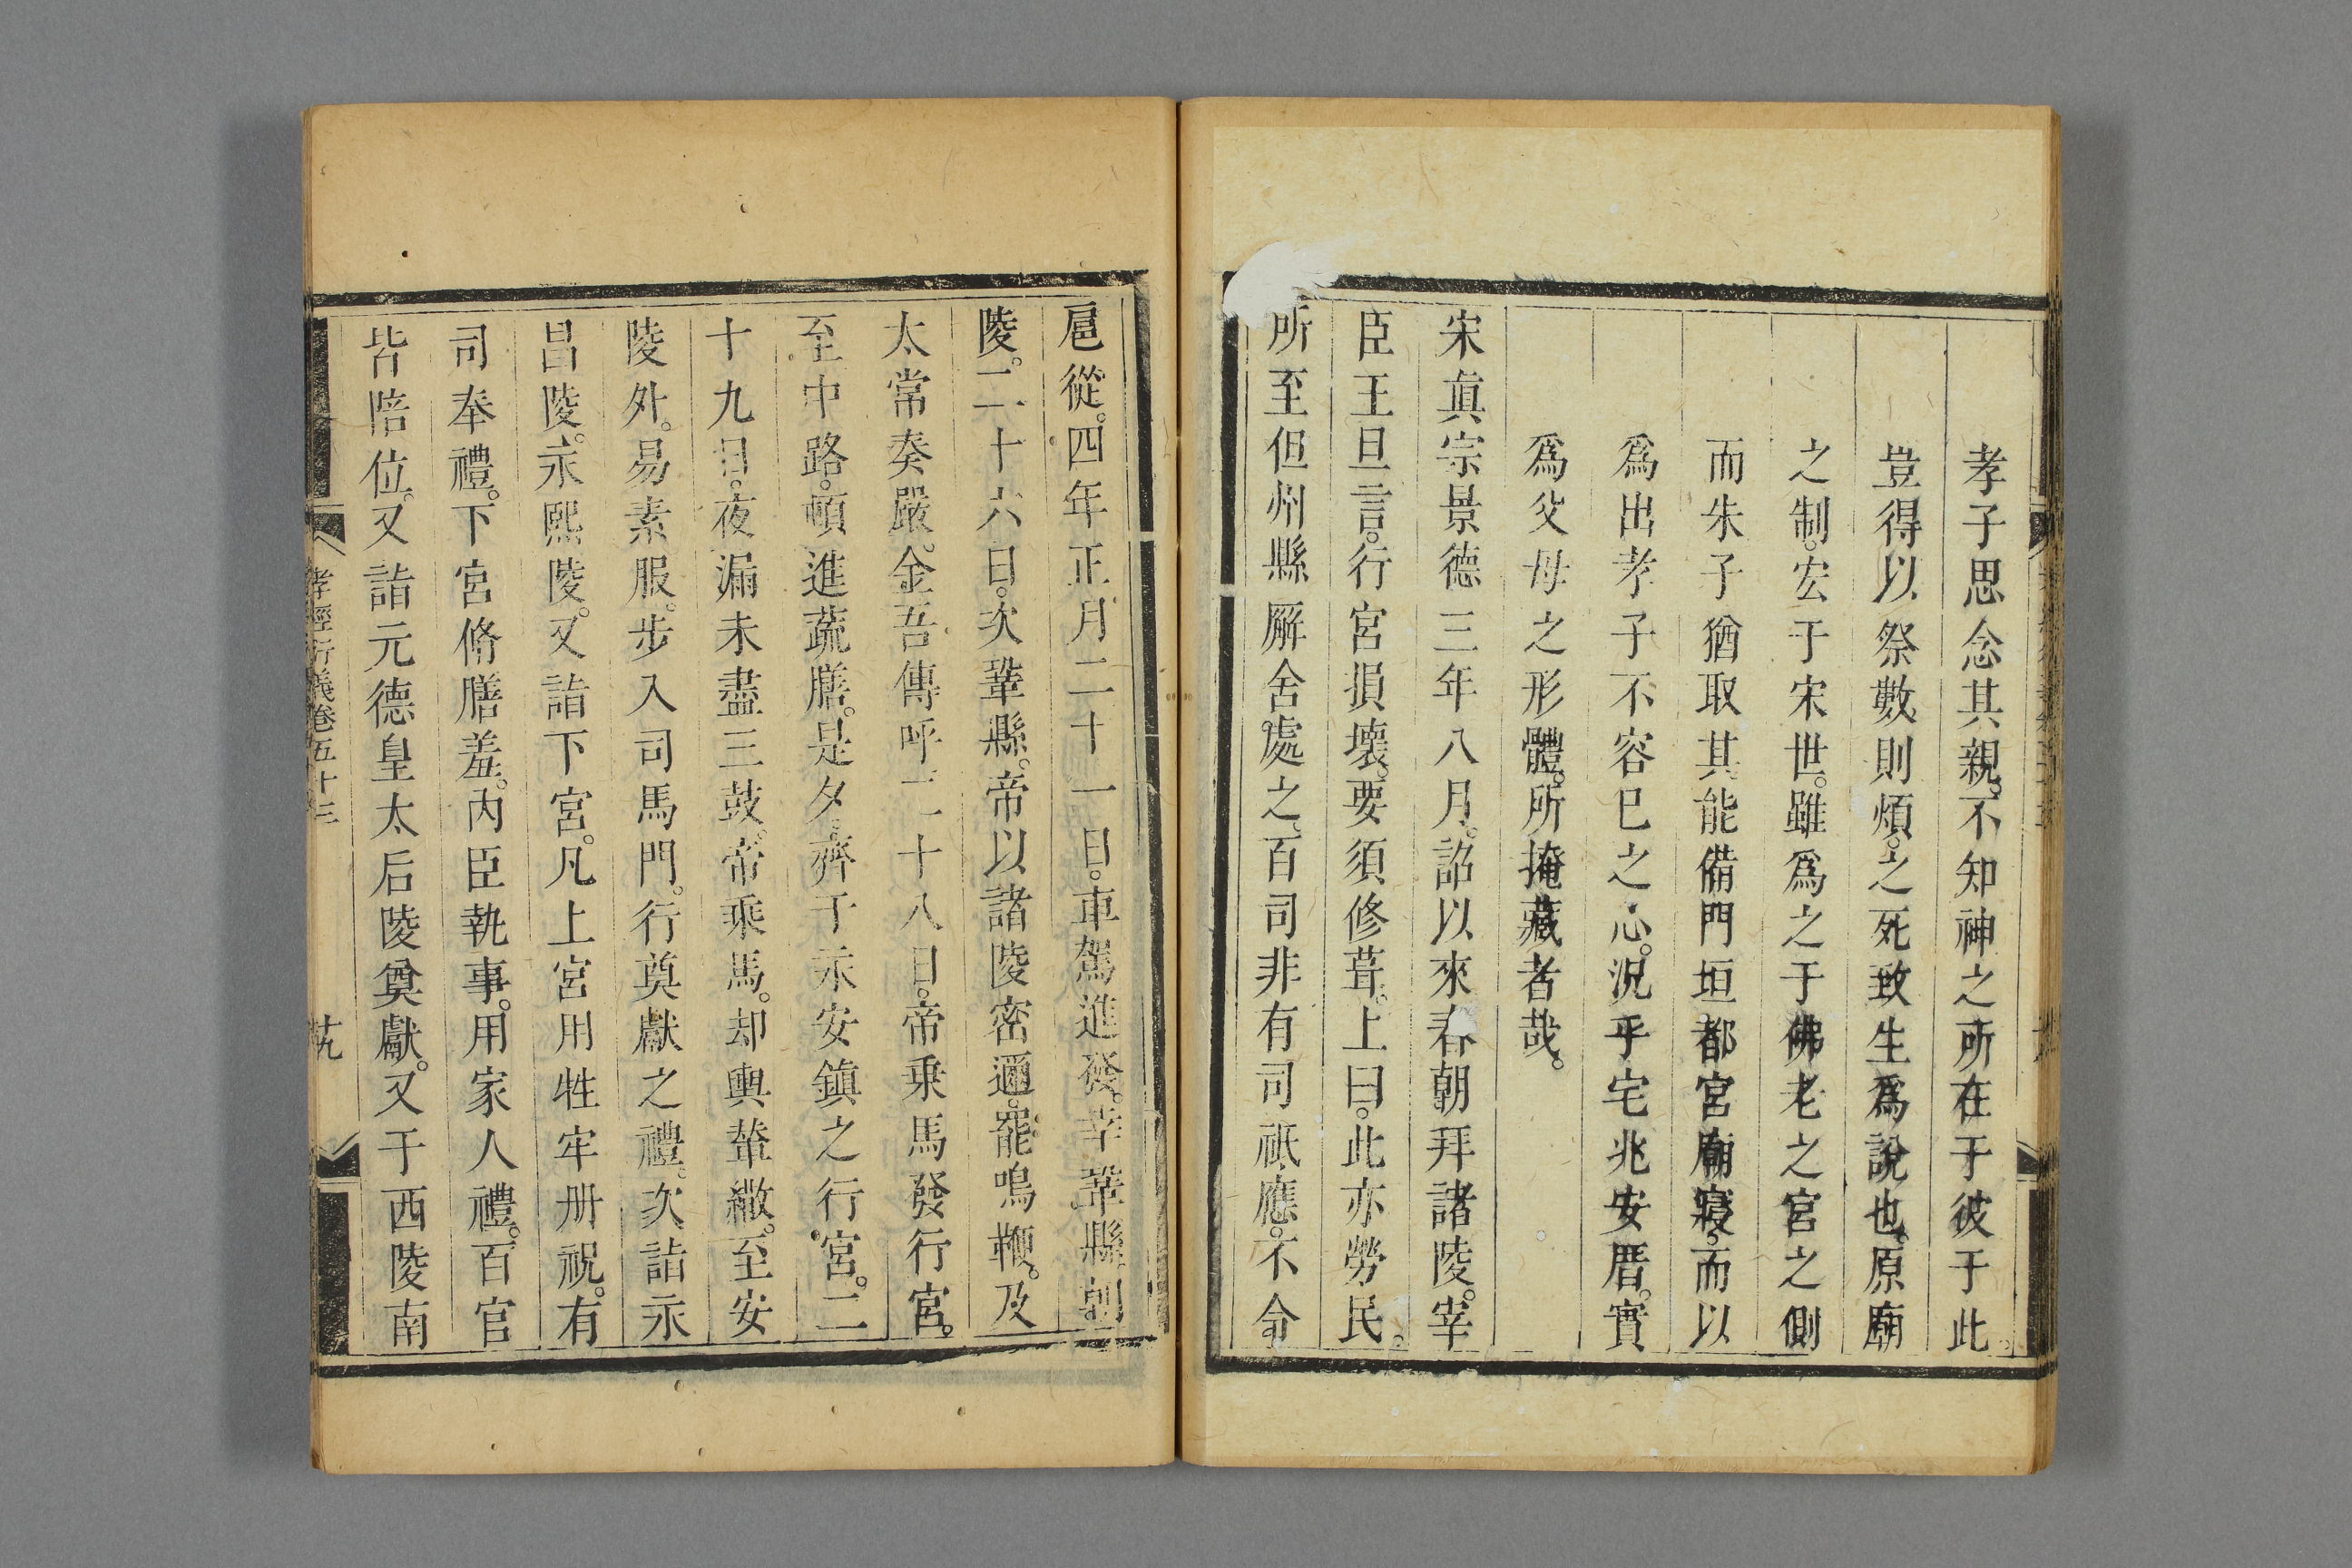 孝子思念其親。不知神之所在于彼于此。
豈得以祭數則煩。之死致生爲說也。原廟
之制。宏于宋世。雖爲之于佛老之宮之側
而朱子猶取其能備門垣都宮廟寢。而以
爲出孝子不容巳之心。况乎宅兆安厝。實
爲父母之形體。所掩藏者哉。
宋眞宗景德三年八月。詔以來春朝拜諸陵。宰
臣王旦言。行宮損壞。要須修葺。上曰。此亦勞民。
所至但州縣廨舍處之。百司非有司祇應。不令
扈從。四年正月二十一日。車駕進發。幸鞏縣朝
陵。二十六日。次鞏縣。帝以諸陵密邇。罷鳴鞭。及
太常奏嚴。金吾傳呼。二十八日。帝乗馬發行宮。
至中路。頓進蔬膳。是夕。齊于永安鎮之行宮。二
十九日。夜漏未盡三鼓。帝乘馬。却輿輦繖。至安
陵外。易素服。步入司馬門。行奠獻之禮。次詣永
昌陵。永熙陵。又詣下宮。凡上宮用牲牢册祝。有
司奉禮。下宮脩膳羞。内臣執事。用家人禮。百官
皆陪位。又詣元德皇太后陵奠獻。又于西陵南
孝經衍義卷五十三